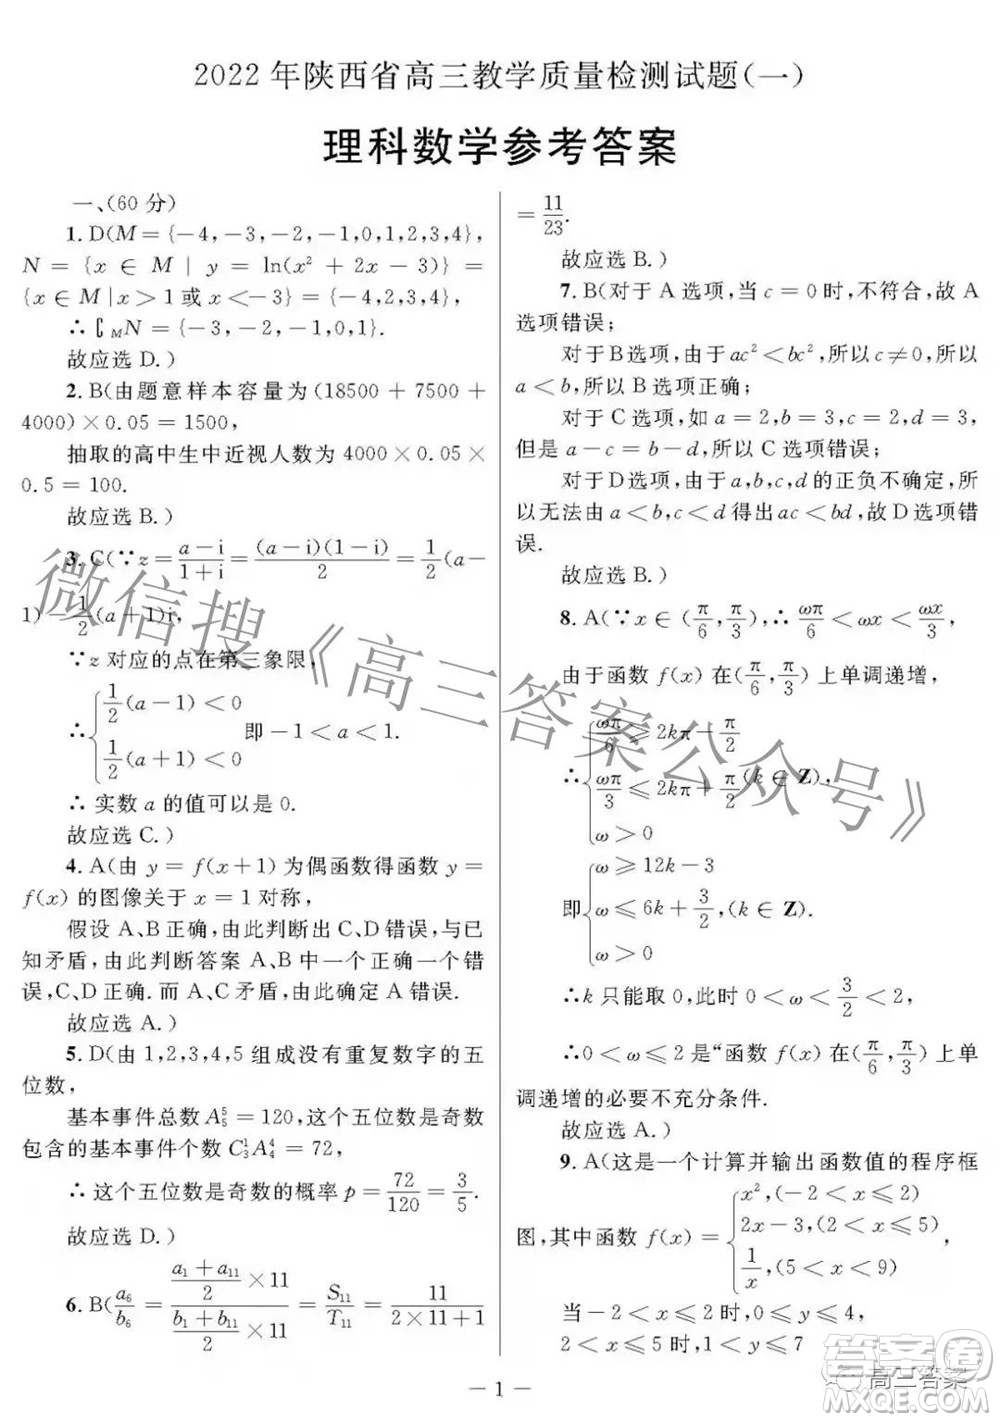 2022 年陕西省高三教学质量检测试题(一)
理科数学参考答案
一、(60 分)
1. D(M = {-4, -3, -2, -1, 0, 1, 2, 3, 4},
N = {x ∈ M | y = ln(x² + 2x - 3)} =
{x ∈ M | x > 1 或 x < -3} = {-4, 2, 3, 4},
∴ ∁_M N = {-3, -2, -1, 0, 1}.
故应选 D.)
2. B(由题意样本容量为(18500 + 7500 +
4000) × 0.05 = 1500,
抽取的高中生中近视人数为 4000 × 0.05 ×
0.5 = 100.
故应选 B.)
3. C(∵ z = (a-i)/(1+i) = (a-i)(1-i)/2 = 1/2(a-
1) - 1/2(a+1)i,
∵ z 对应的点在第三象限,
∴ { 1/2(a-1) < 0
1/2(a+1) < 0 即 -1 < a < 1.
∴ 实数 a 的值可以是 0.
故应选 C.)
4. A(由 y = f(x+1) 为偶函数得函数 y =
f(x) 的图像关于 x = 1 对称,
假设 A、B 正确,由此判断出 C、D 错误,与已
知矛盾,由此判断答案 A、B 中一个正确一个错
误,C、D 正确. 而 A、C 矛盾,由此确定 A 错误.
故应选 A.)
5. D(由 1,2,3,4,5 组成没有重复数字的五
位数,
基本事件总数 A₅⁵ = 120,这个五位数是奇数
包含的基本事件个数 C₃¹A₄⁴ = 72,
∴ 这个五位数是奇数的概率 p = 72/120 = 3/5.
故应选 D.)
6. B(a₆/b₆ = ((a₁+a₁₁)/2 × 11)/((b₁+b₁₁)/2 × 11) = S₁₁/T₁₁ = 11/(2×11+1)
= 11/23.
故应选 B.)
7. B(对于 A 选项,当 c = 0 时,不符合,故 A
选项错误;
对于 B 选项,由于 ac² < bc²,所以 c ≠ 0,所以
a < b,所以 B 选项正确;
对于 C 选项,如 a = 2, b = 3, c = 2, d = 3,
但是 a - c = b - d,所以 C 选项错误;
对于 D 选项,由于 a,b,c,d 的正负不确定,所
以无法由 a < b, c < d 得出 ac < bd,故 D 选项错
误.
故应选 B.)
8. A(∵ x ∈ (π/6, π/3), ∴ ωπ/6 < ωx < ωx/3,
由于函数 f(x) 在 (π/6, π/3) 上单调递增,
∴ { ωπ/6 ≥ 2kπ - π/2
ωπ/3 ≤ 2kπ + π/2 (k ∈ Z),
ω > 0
即 { ω ≥ 12k - 3
ω ≤ 6k + 3/2, (k ∈ Z).
ω > 0
∴ k 只能取 0,此时 0 < ω < 3/2,
∴ 0 < ω ≤ 2 是“函数 f(x) 在 (π/6, π/3) 上单
调递增的必要不充分条件.
故应选 A.)
9. A(这是一个计算并输出函数值的程序框
图,其中函数 f(x) = { x², (-2 < x ≤ 2)
2x - 3, (2 < x ≤ 5),
1/x, (5 < x < 9)
当 -2 < x ≤ 2 时, 0 ≤ y ≤ 4,
2 < x ≤ 5 时, 1 < y ≤ 7
— 1 —
微信搜《高三答案公众号》
答案圈
高三答案